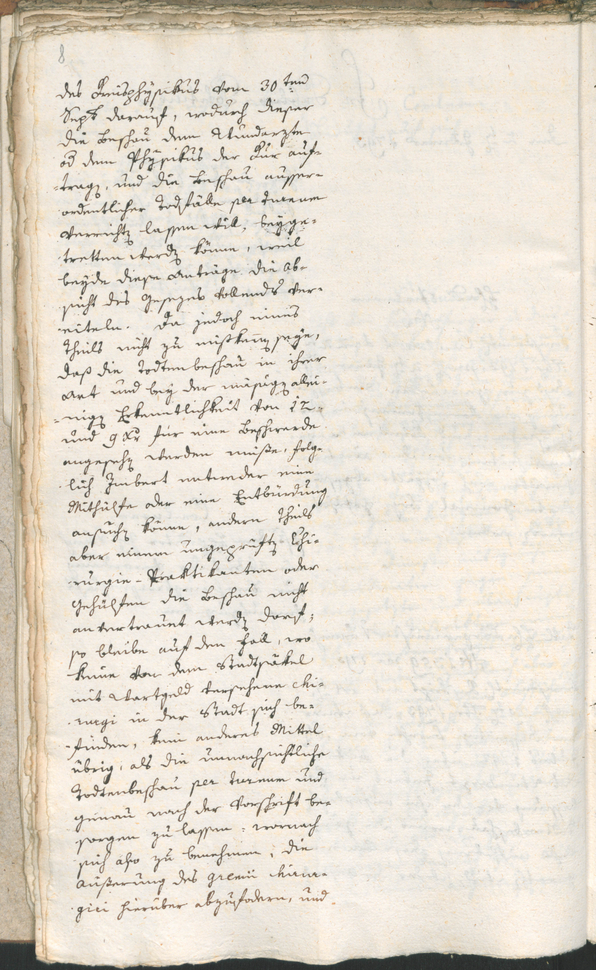 8
des Kreisphysikus vom 30ten
Septb darauf, wodurch dieser
die Beschau dem Wundarzte
od dem Physikus der Kur auf-
-tragen, und die Beschau ausser-
ordentlicher Todfälle per turnum
verrichten lassen will, beyge-
tretten werden könne, weil
beyde diese Anträge die Ab-
sicht des Gesezes vollends ver-
eiteln. Da jedoch eines
Theils nicht zu mißkennen seye,
daß die Todtenbeschau in ihrer
Art und bey der mäsigen
-nigen Erkenntlichkeit von 12
und 9 Xr für eine Beschwerde
angesehen werden müße, folg-
lich Imbert entweder eine
Mithülfe oder eine Entbürdung
ansuchen könne, andern Theils
aber einem ungeprüften Chi-
rurgie-Praktikanten oder
Gehülfen die Beschau nicht
anvertrauet werden dorf;
so bleibe auf den Fall, wo
keine von dem Stadtsäkel
mit Wartgeld versehene Chi-
rurgi in der Stadt sich be-
-finden, kein anderes Mittel
übrig, als die unnachsichtliche
Todtenbeschau per turnum und
genau nach der Vorschrift be-
sorgen zu lassen: wornach
sich also zu benehmen, die
Äußerung des gremii chirur-
gici hierüber abzufodern, und